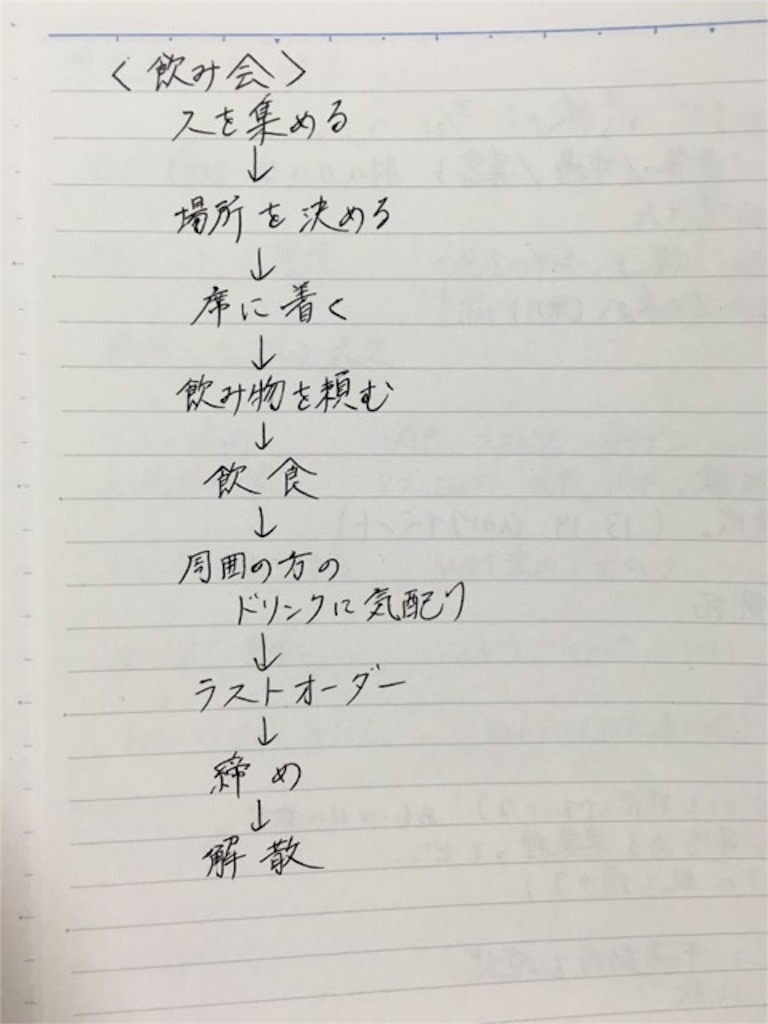 〈飲み会〉
人を集める
↓
場所を決める
↓
席に着く
↓
飲み物を頼む
↓
飲食
↓
周囲の方の
ドリンクに気配り
↓
ラストオーダー
↓
締め
↓
解散